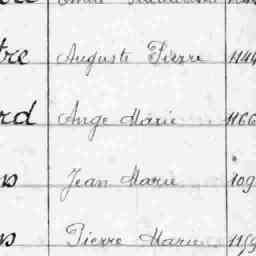 tre Auguste Pierre 1144
rd Ange Marie 1166
s Jean Marie 109
s Pierre Marie 115